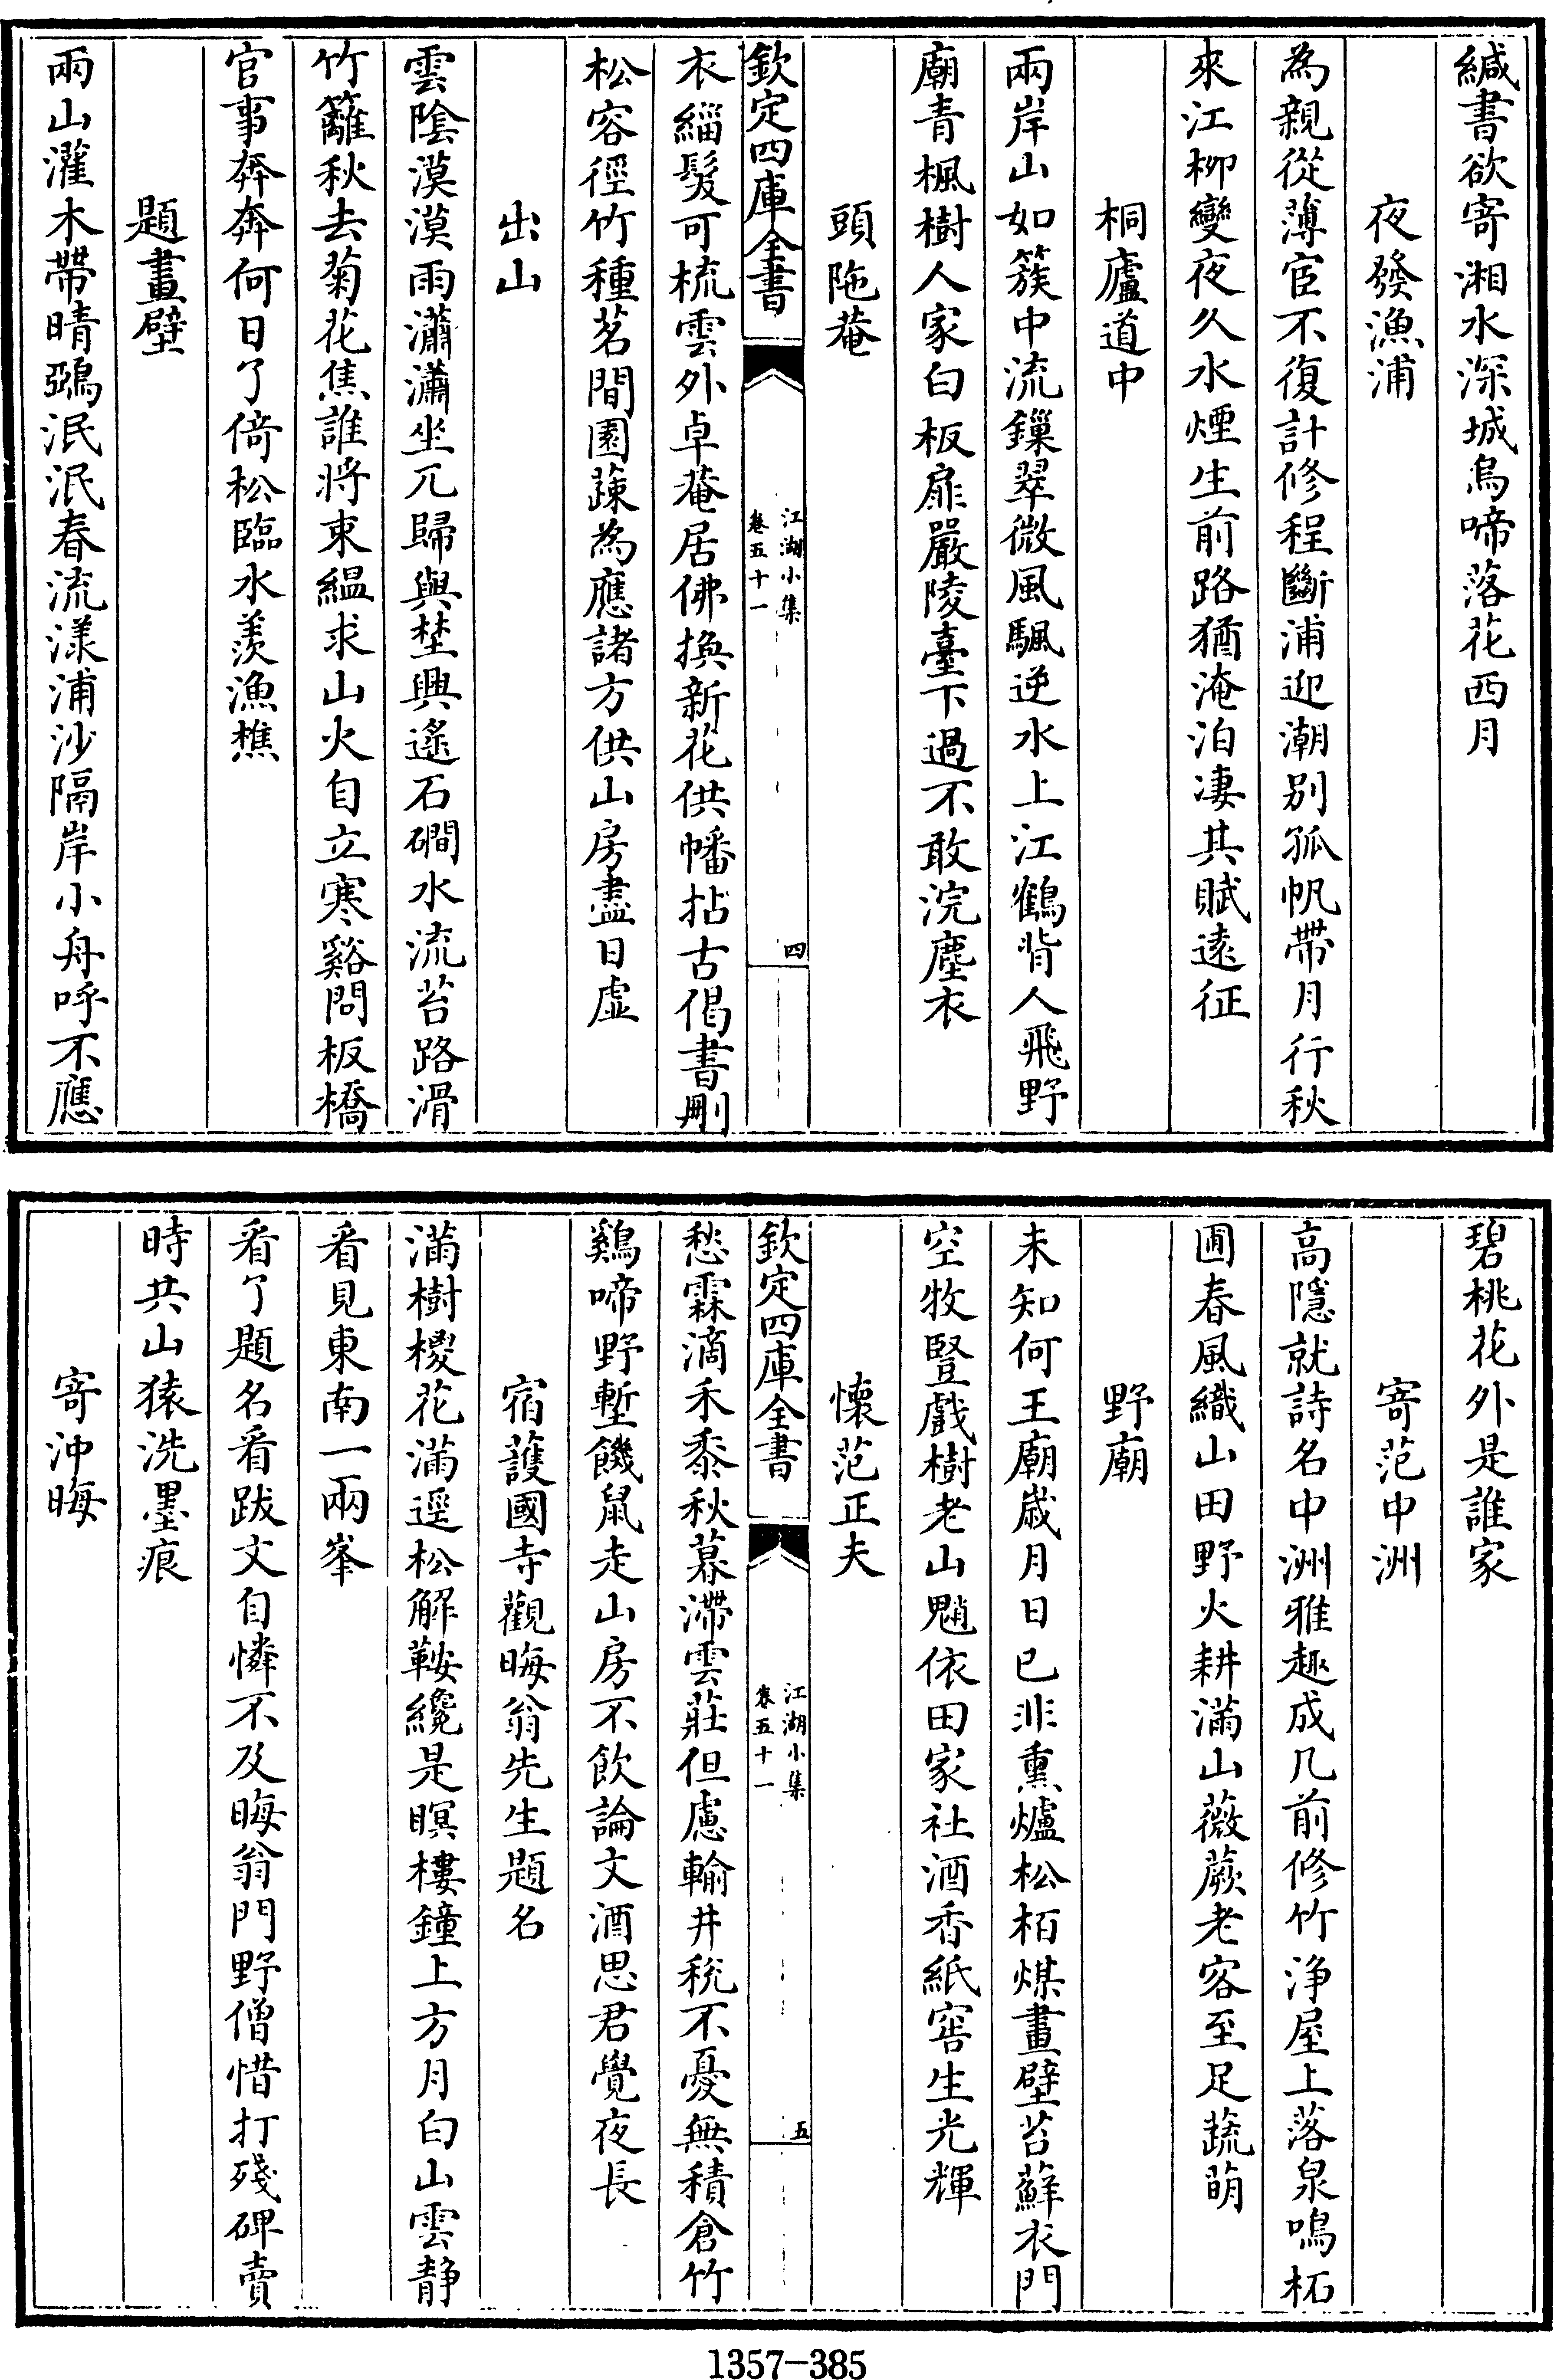 緘書欲寄湘水深城烏啼落花西月
夜發漁浦
為親從薄宦不復計修程斷浦迎潮别孤帆帶月行秋
來江柳變夜久水煙生前路猶淹泊凄其賦遠征
桐廬道中
兩岸山如簇中流鏁翠微風颿逆水上江鶴背人飛野
廟青楓樹人家白板扉嚴陵臺下過不敢浣塵衣
頭陁菴
欽定四庫全書
江湖小集
卷五十一
四
衣緇髮可梳雲外卓菴居佛換新花供幡拈古偈書刪
松容徑竹種茗間園蔬為應諸方供山房盡日虛
出山
雲陰漠漠雨瀟瀟坐兀歸與埜興遙石磵水流苔路滑
竹籬秋去菊花焦誰將束緼求山火自立寒谿問板橋
官事奔奔何日了倚松臨水羨漁樵
題畫壁
兩山灌木帶晴鵶泯泯春流漾浦沙隔岸小舟呼不應
碧桃花外是誰家
寄范中洲
高隱就詩名中洲雅趣成几前修竹浄屋上落泉鳴柘
圃春風織山田野火耕滿山薇蕨老客至足蔬萌
野廟
未知何王廟歲月日已非熏爐松栢煤畫壁苔蘚衣門
空牧豎戲樹老山魈依田家社酒香紙窖生光輝
懷范正夫
欽定四庫全書
江湖小集
卷五十一
五
愁霖滴禾黍秋暮滯雲莊但慮輸井稅不憂無積倉竹
鷄啼野塹饑鼠走山房不飲論文酒思君覺夜長
宿護國寺觀晦翁先生題名
滿樹椶花滿逕松解鞍纔是暝樓鐘上方月白山雲静
看見東南一兩峯
看了題名看跋文自憐不及晦翁門野僧惜打殘碑賣
時共山猿洗墨痕
寄沖晦
1357-385